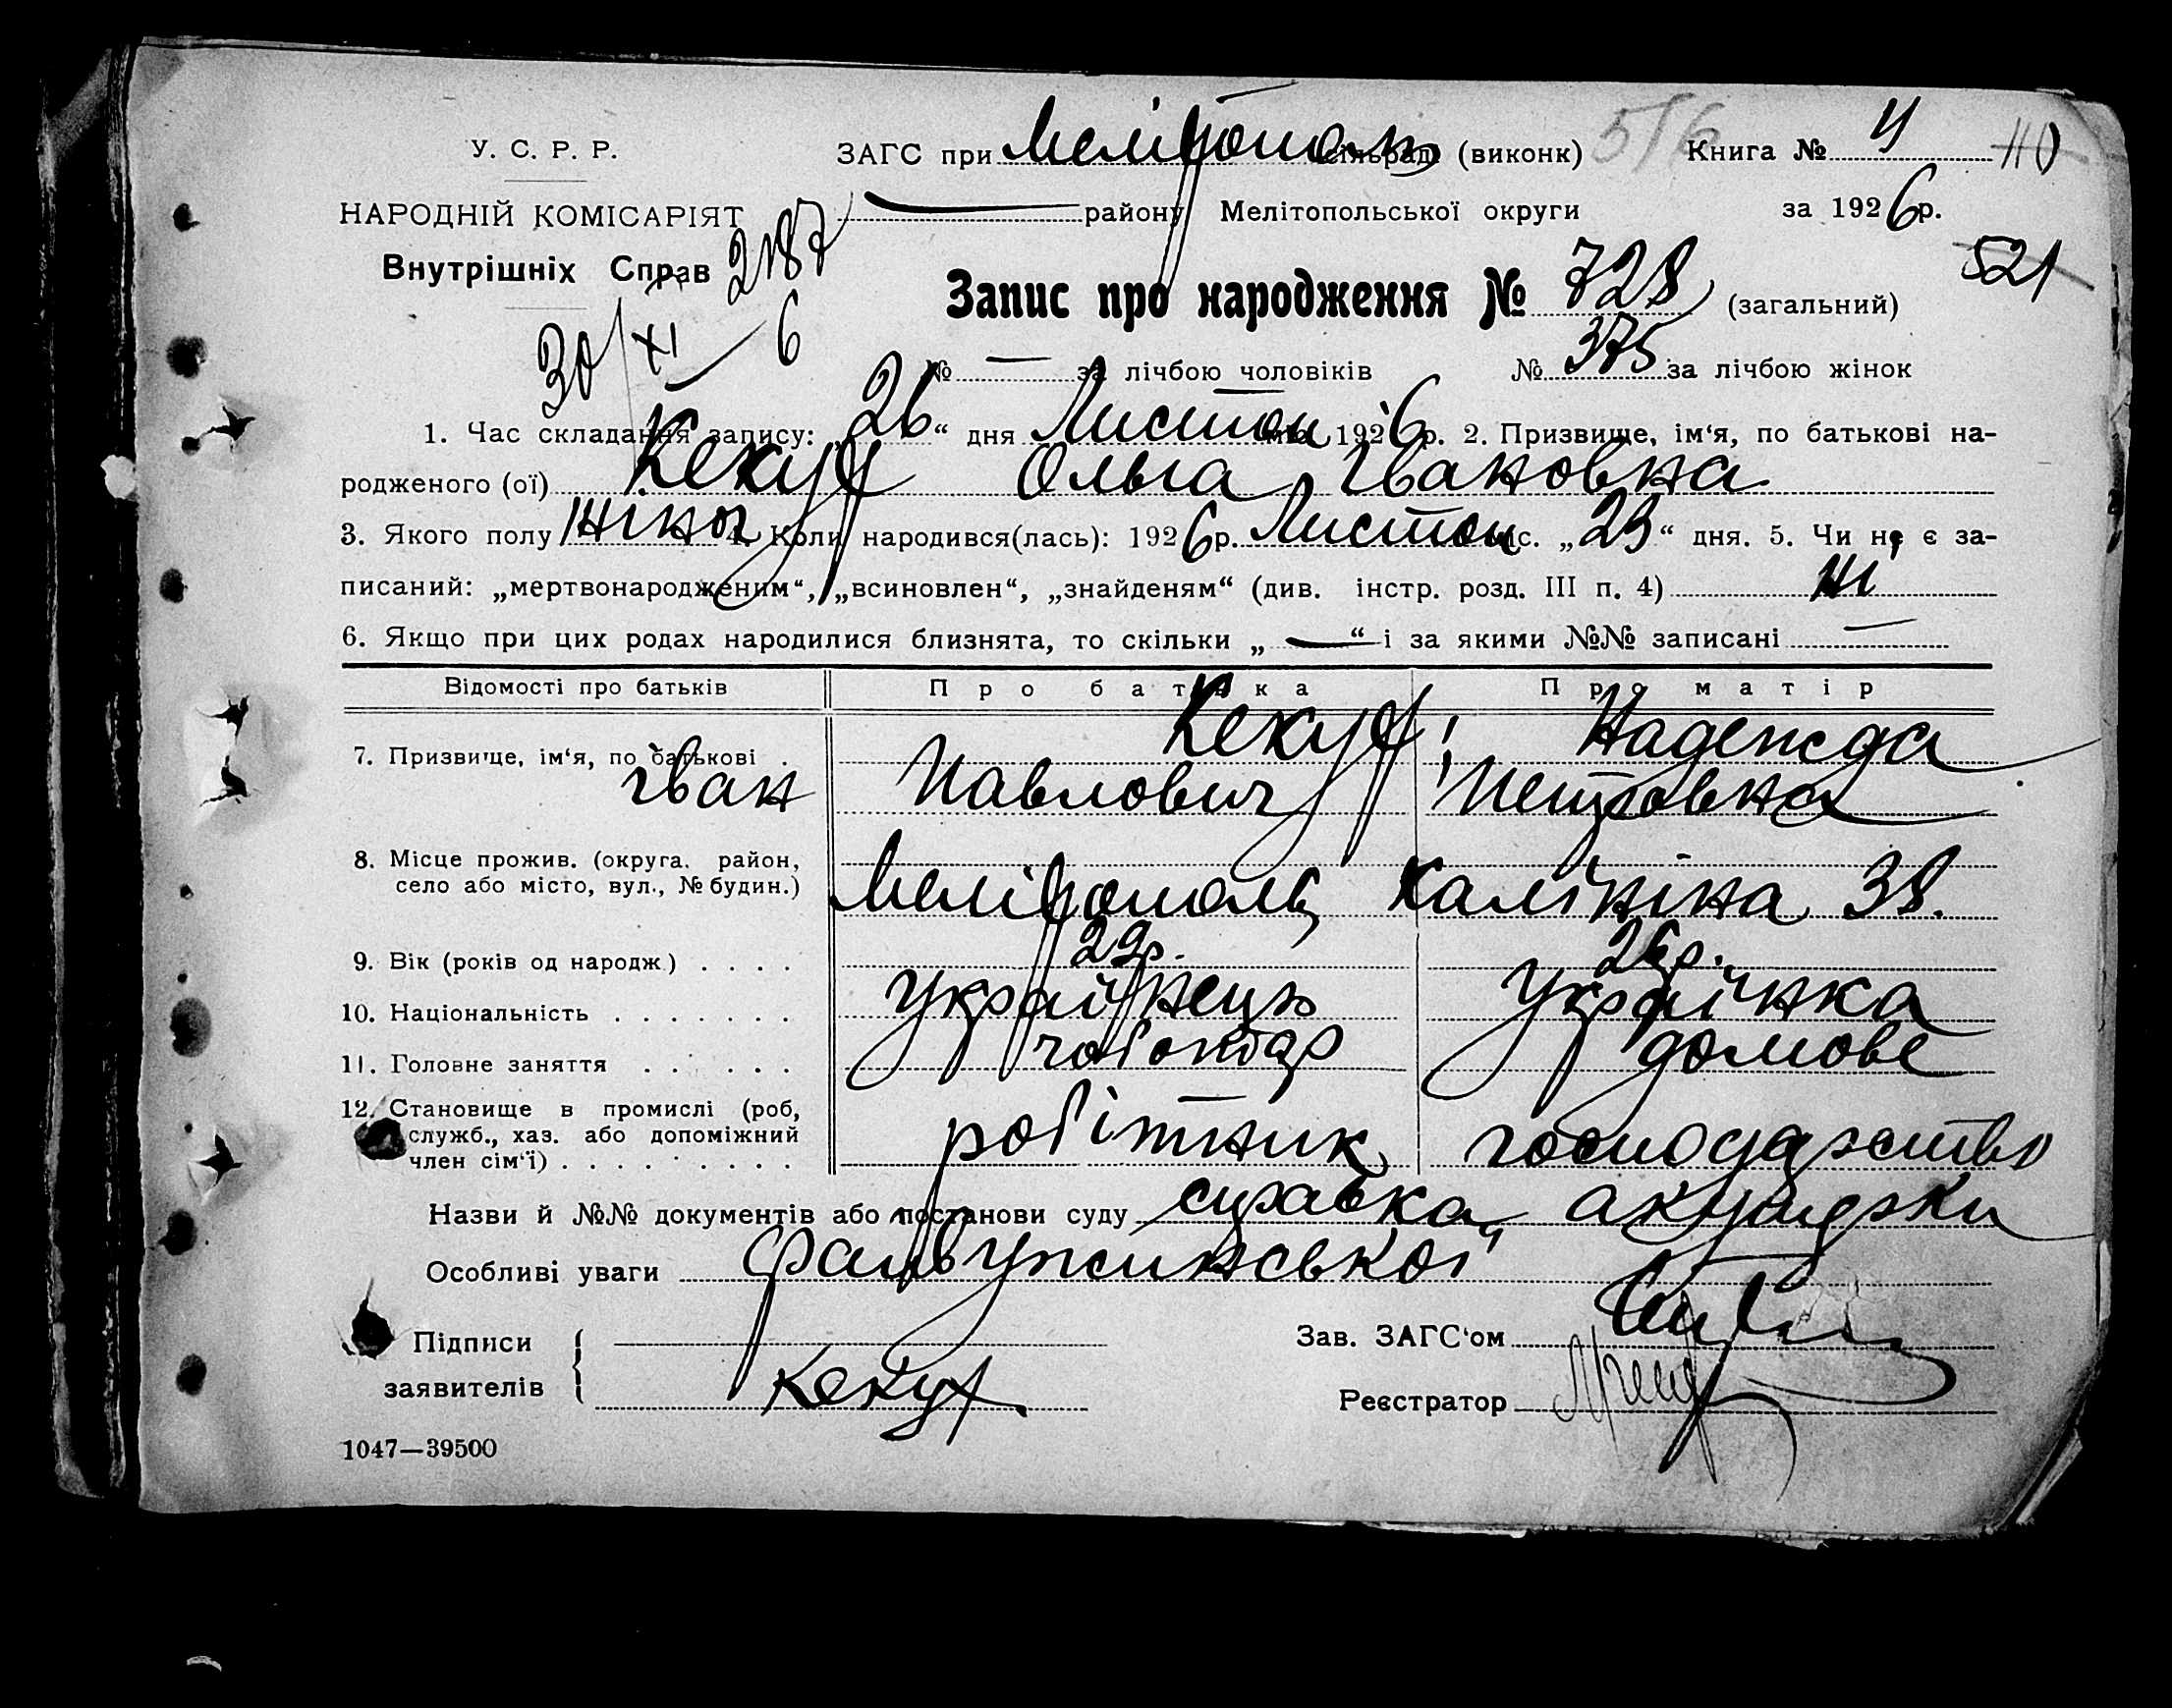 У. С. Р. Р.
ЗАГС при Мелітополь сільраді (виконк) 516 Книга № 4 110
НАРОДНІЙ КОМІСАРІЯТ району Мелітопольської округи за 1926 р.
Внутрішніх Справ 2187 521
Запис про народження № 728 (загальний)
30/XI – 6
№ — за лічбою чоловіків № 375 за лічбою жінок
1. Час складання запису: „26“ дня Листоп міс. 1926 р. 2. Призвище, ім‘я, по батькові на-
родженого (ої) Кекух Ольга Івановна
3. Якого полу жіноч 4. Коли народився(лась): 1926 р. Листоп міс. „23“ дня. 5. Чи не є за-
писаний: „мертвонародженим“, „всиновлен“, „знайденям“ (див. інстр. розд. III п. 4) ні
6. Якщо при цих родах народилися близнята, то скільки „ — “ і за якими №№ записані —
Відомості про батьків Про батька Про матір
7. Призвище, ім‘я, по батькові . Кекух Надежда
Іван Павлович Петровна
8. Місце прожив. (округа. район,
село або місто, вул., № будин.) Мелітополь Калініна 38.
9. Вік (років од народж.) . . . . 29р. 26р.
10. Національність . . . . . . . Українець Українка
11. Головне заняття . . . . . . чоботар домове
12. Становище в промислі (роб,
служб., хаз. або допоміжний робітник господарство
член сім‘ї) . . . . . . . . .
Назви й №№ документів або постанови суду справка акушерки
Особливі уваги
Підписи Зав. ЗАГС‘ом
заявителів Кекух Реєстратор
1047—39500